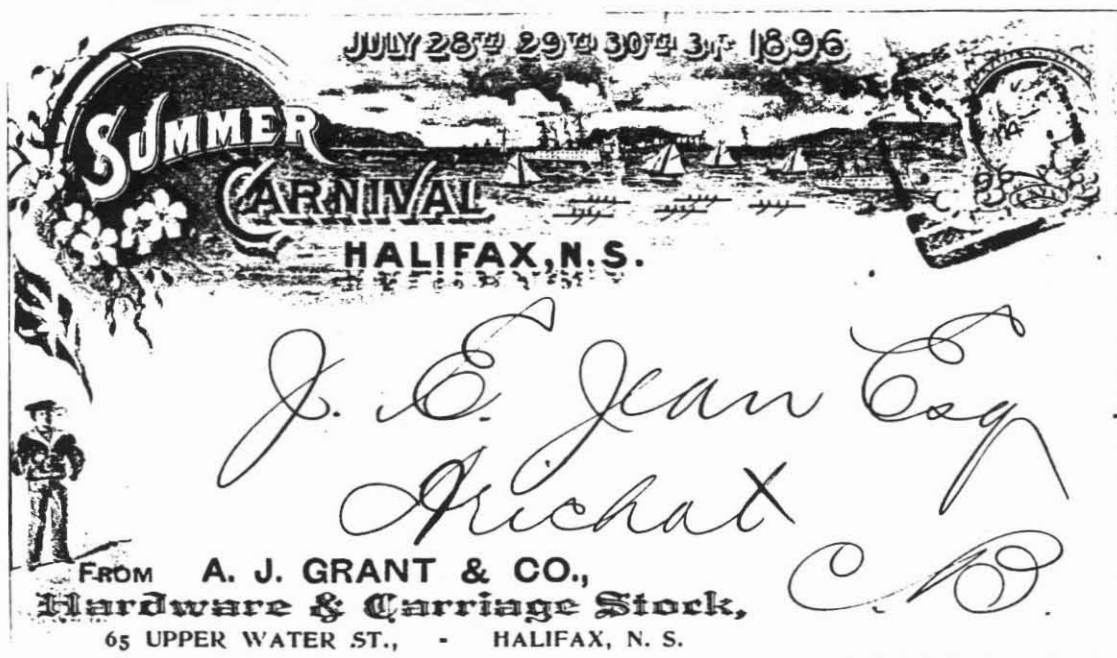 JULY 28TH 29TH 30TH 31ST 1896
SUMMER
CARNIVAL
HALIFAX, N.S.
J. E. Jean Esq
Arichat
C.B.
FROM A. J. GRANT & CO.,
Hardware & Carriage Stock,
65 UPPER WATER ST., - HALIFAX, N. S.